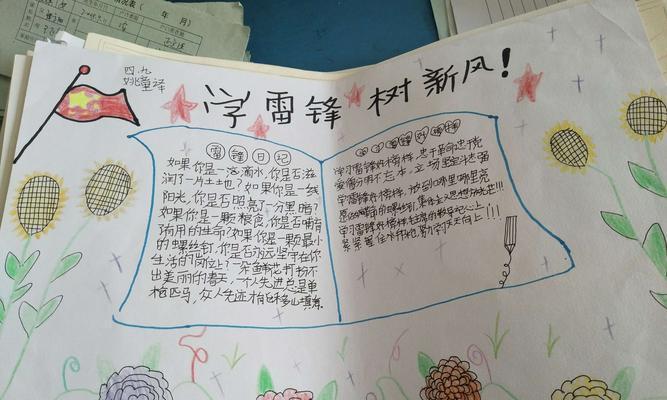 四.九
姚童译
学雷锋 树新风!
雷锋日记
如果你是一滴水,你是否滋
润了一片土地?如果你是一线
阳光,你是否照亮了一分黑暗?
如果你是一颗粮食,你是否哺育
有用的生命?如果你是一颗最小
的螺丝钉,你是否永远坚守在你
生活的岗位上?一朵鲜花打扮不
出美丽的春天,一个人先进总是单
枪匹马,众人先进
学习雷锋好榜样
学习雷锋好榜样,忠于革命忠于党
爱憎分明不忘本,立场坚定斗志强
学习雷锋好榜样,放到哪里哪里亮
愿做革命的螺丝钉,集体主义思想放光芒!!!
学习雷锋好榜样毛主席的教导记心上
天天向上!!!